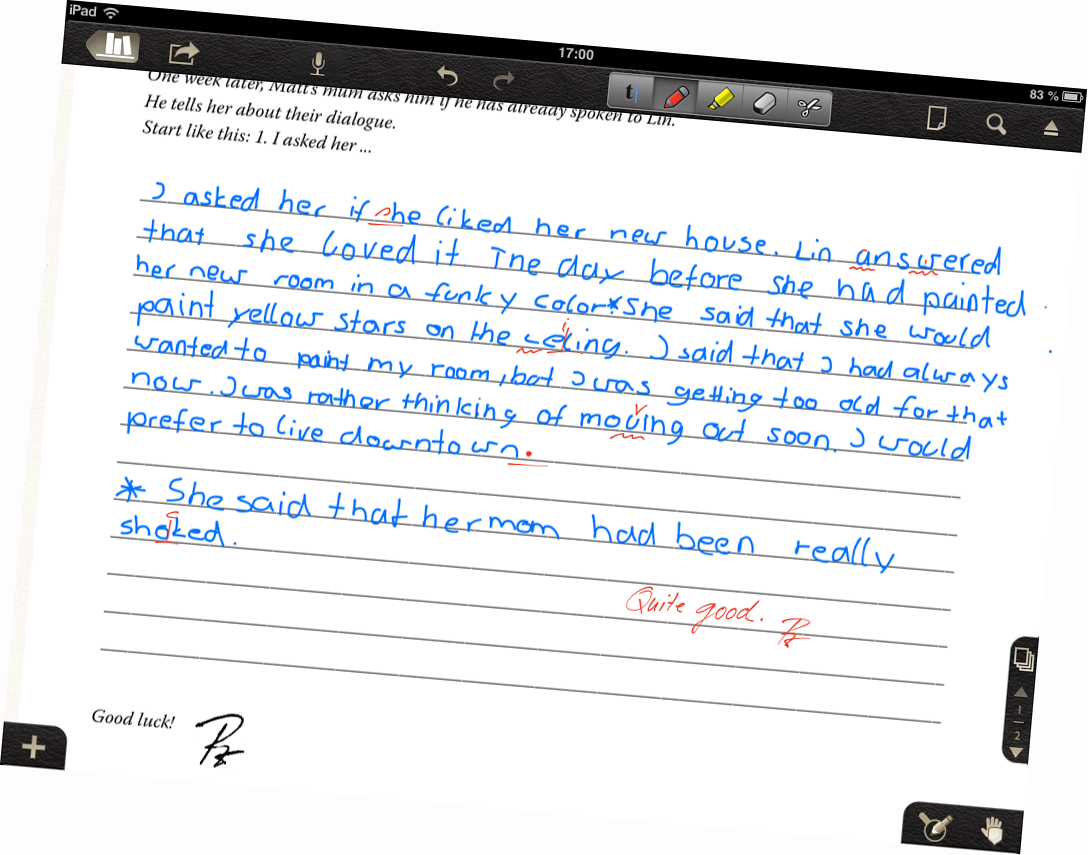 iPad
17:00
83 %
One week later, Matt's mum asks him if he has already spoken to Lin.
He tells her about their dialogue.
Start like this: 1. I asked her ...
I asked her if she liked her new house. Lin answered
that she loved it The day before she had painted
her new room in a funky color*She said that she would
paint yellow stars on the ceiling. I said that I had always
wanted to paint my room, but I was getting too old for that
now. I was rather thinking of moving out soon. I would
prefer to live downtown.
* She said that her mom had been really
shocked.
Quite good.
Good luck!
1
2